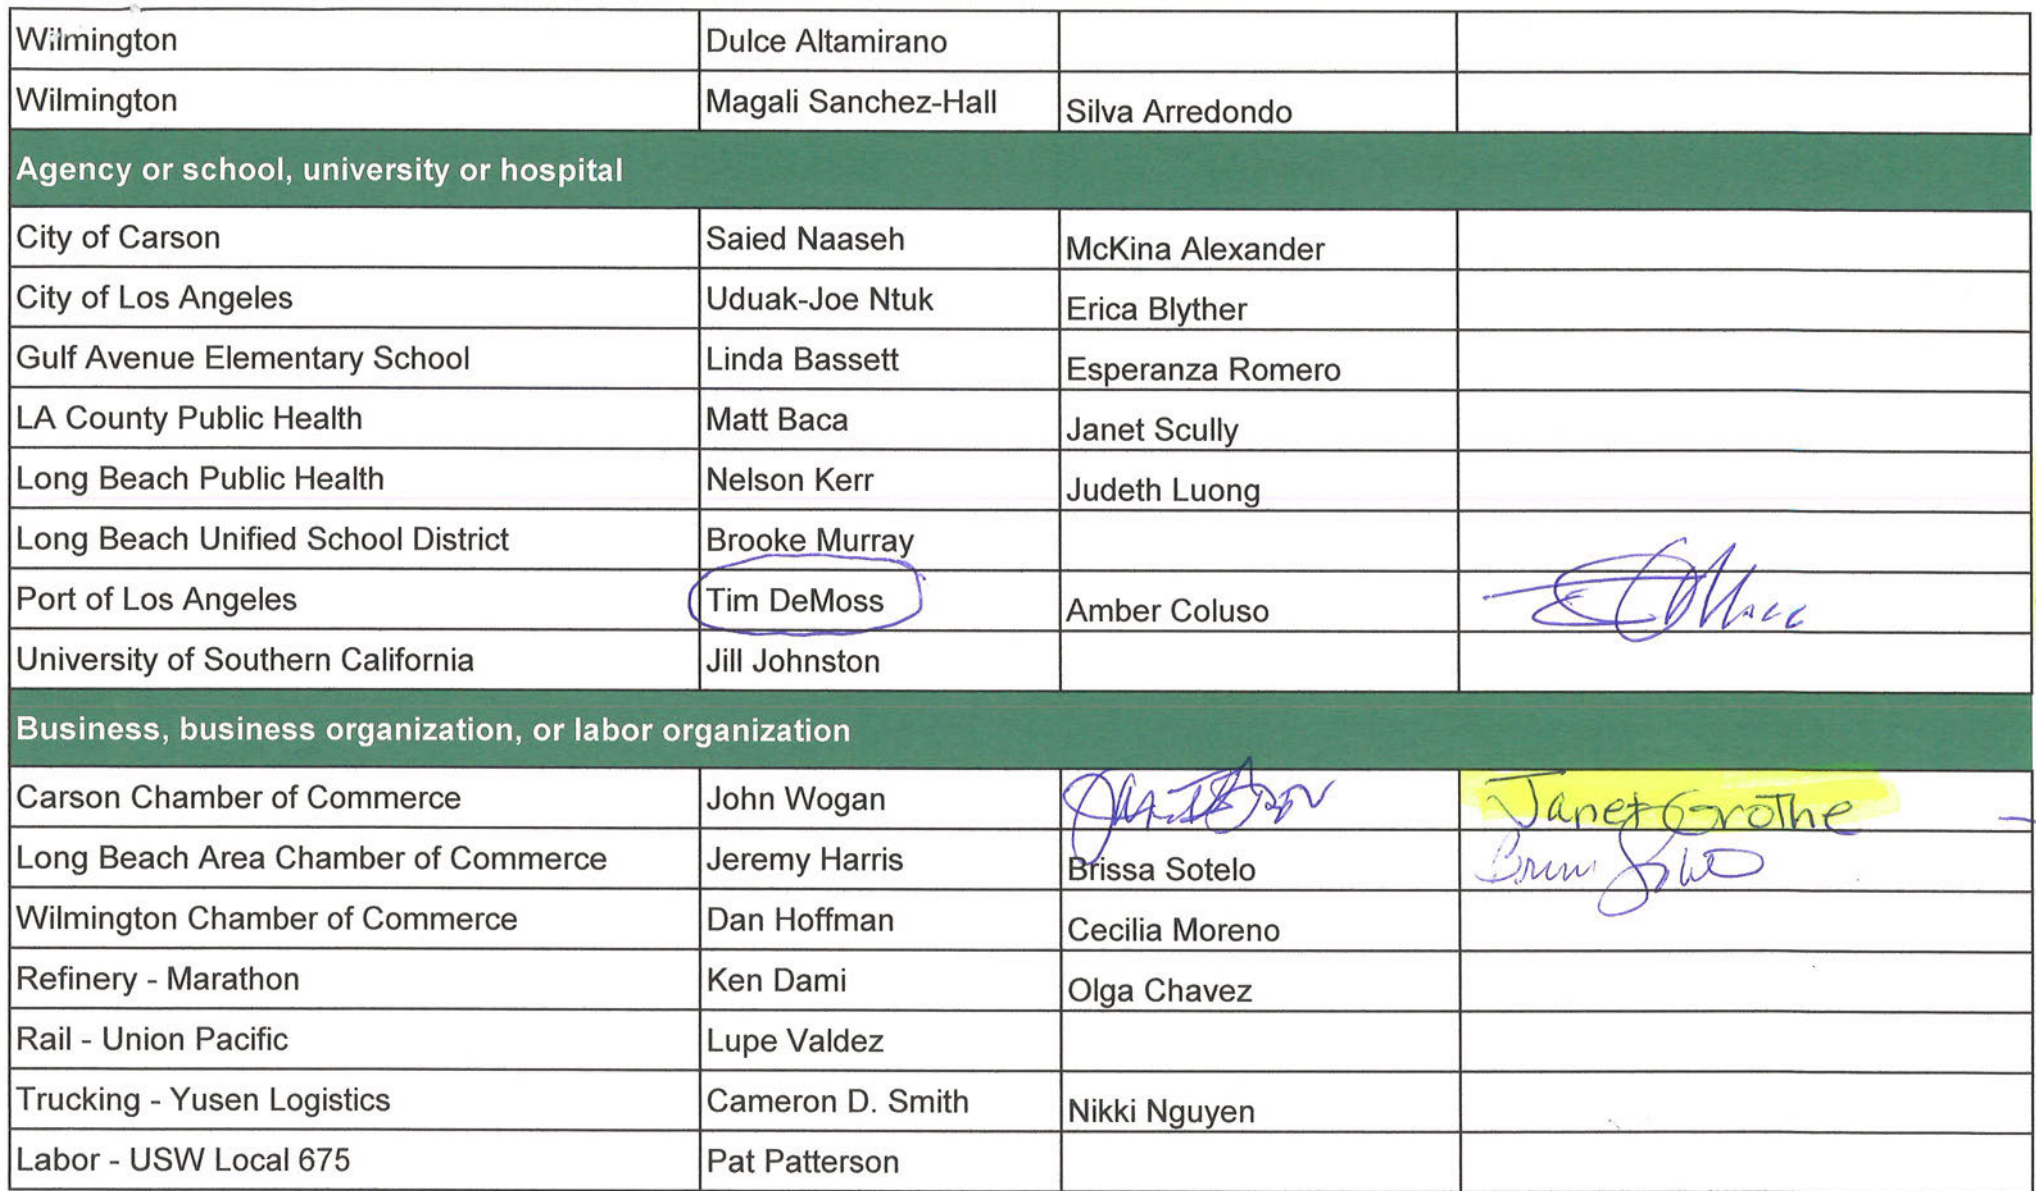 Wilmington Dulce Altamirano
Wilmington Magali Sanchez-Hall Silva Arredondo
Agency or school, university or hospital
City of Carson Saied Naaseh McKina Alexander
City of Los Angeles Uduak-Joe Ntuk Erica Blyther
Gulf Avenue Elementary School Linda Bassett Esperanza Romero
LA County Public Health Matt Baca Janet Scully
Long Beach Public Health Nelson Kerr Judeth Luong
Long Beach Unified School District Brooke Murray
Port of Los Angeles Tim DeMoss Amber Coluso
University of Southern California Jill Johnston
Business, business organization, or labor organization
Carson Chamber of Commerce John Wogan Janet Grothe
Long Beach Area Chamber of Commerce Jeremy Harris Brissa Sotelo
Wilmington Chamber of Commerce Dan Hoffman Cecilia Moreno
Refinery - Marathon Ken Dami Olga Chavez
Rail - Union Pacific Lupe Valdez
Trucking - Yusen Logistics Cameron D. Smith Nikki Nguyen
Labor - USW Local 675 Pat Patterson